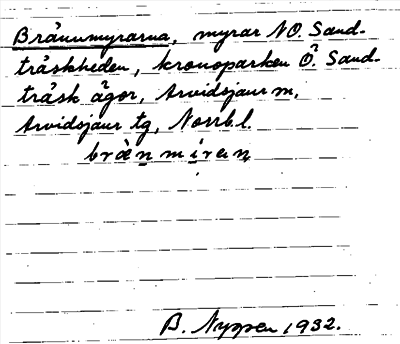 Brännmyrarna, myrar NO. Sand-
träskheden, kronoparken Ö. Sand-
träsk ägor, Arvidsjaur m,
Arvidsjaur tg, Norrb. l.
brän miran
B. Nyppen 1932.